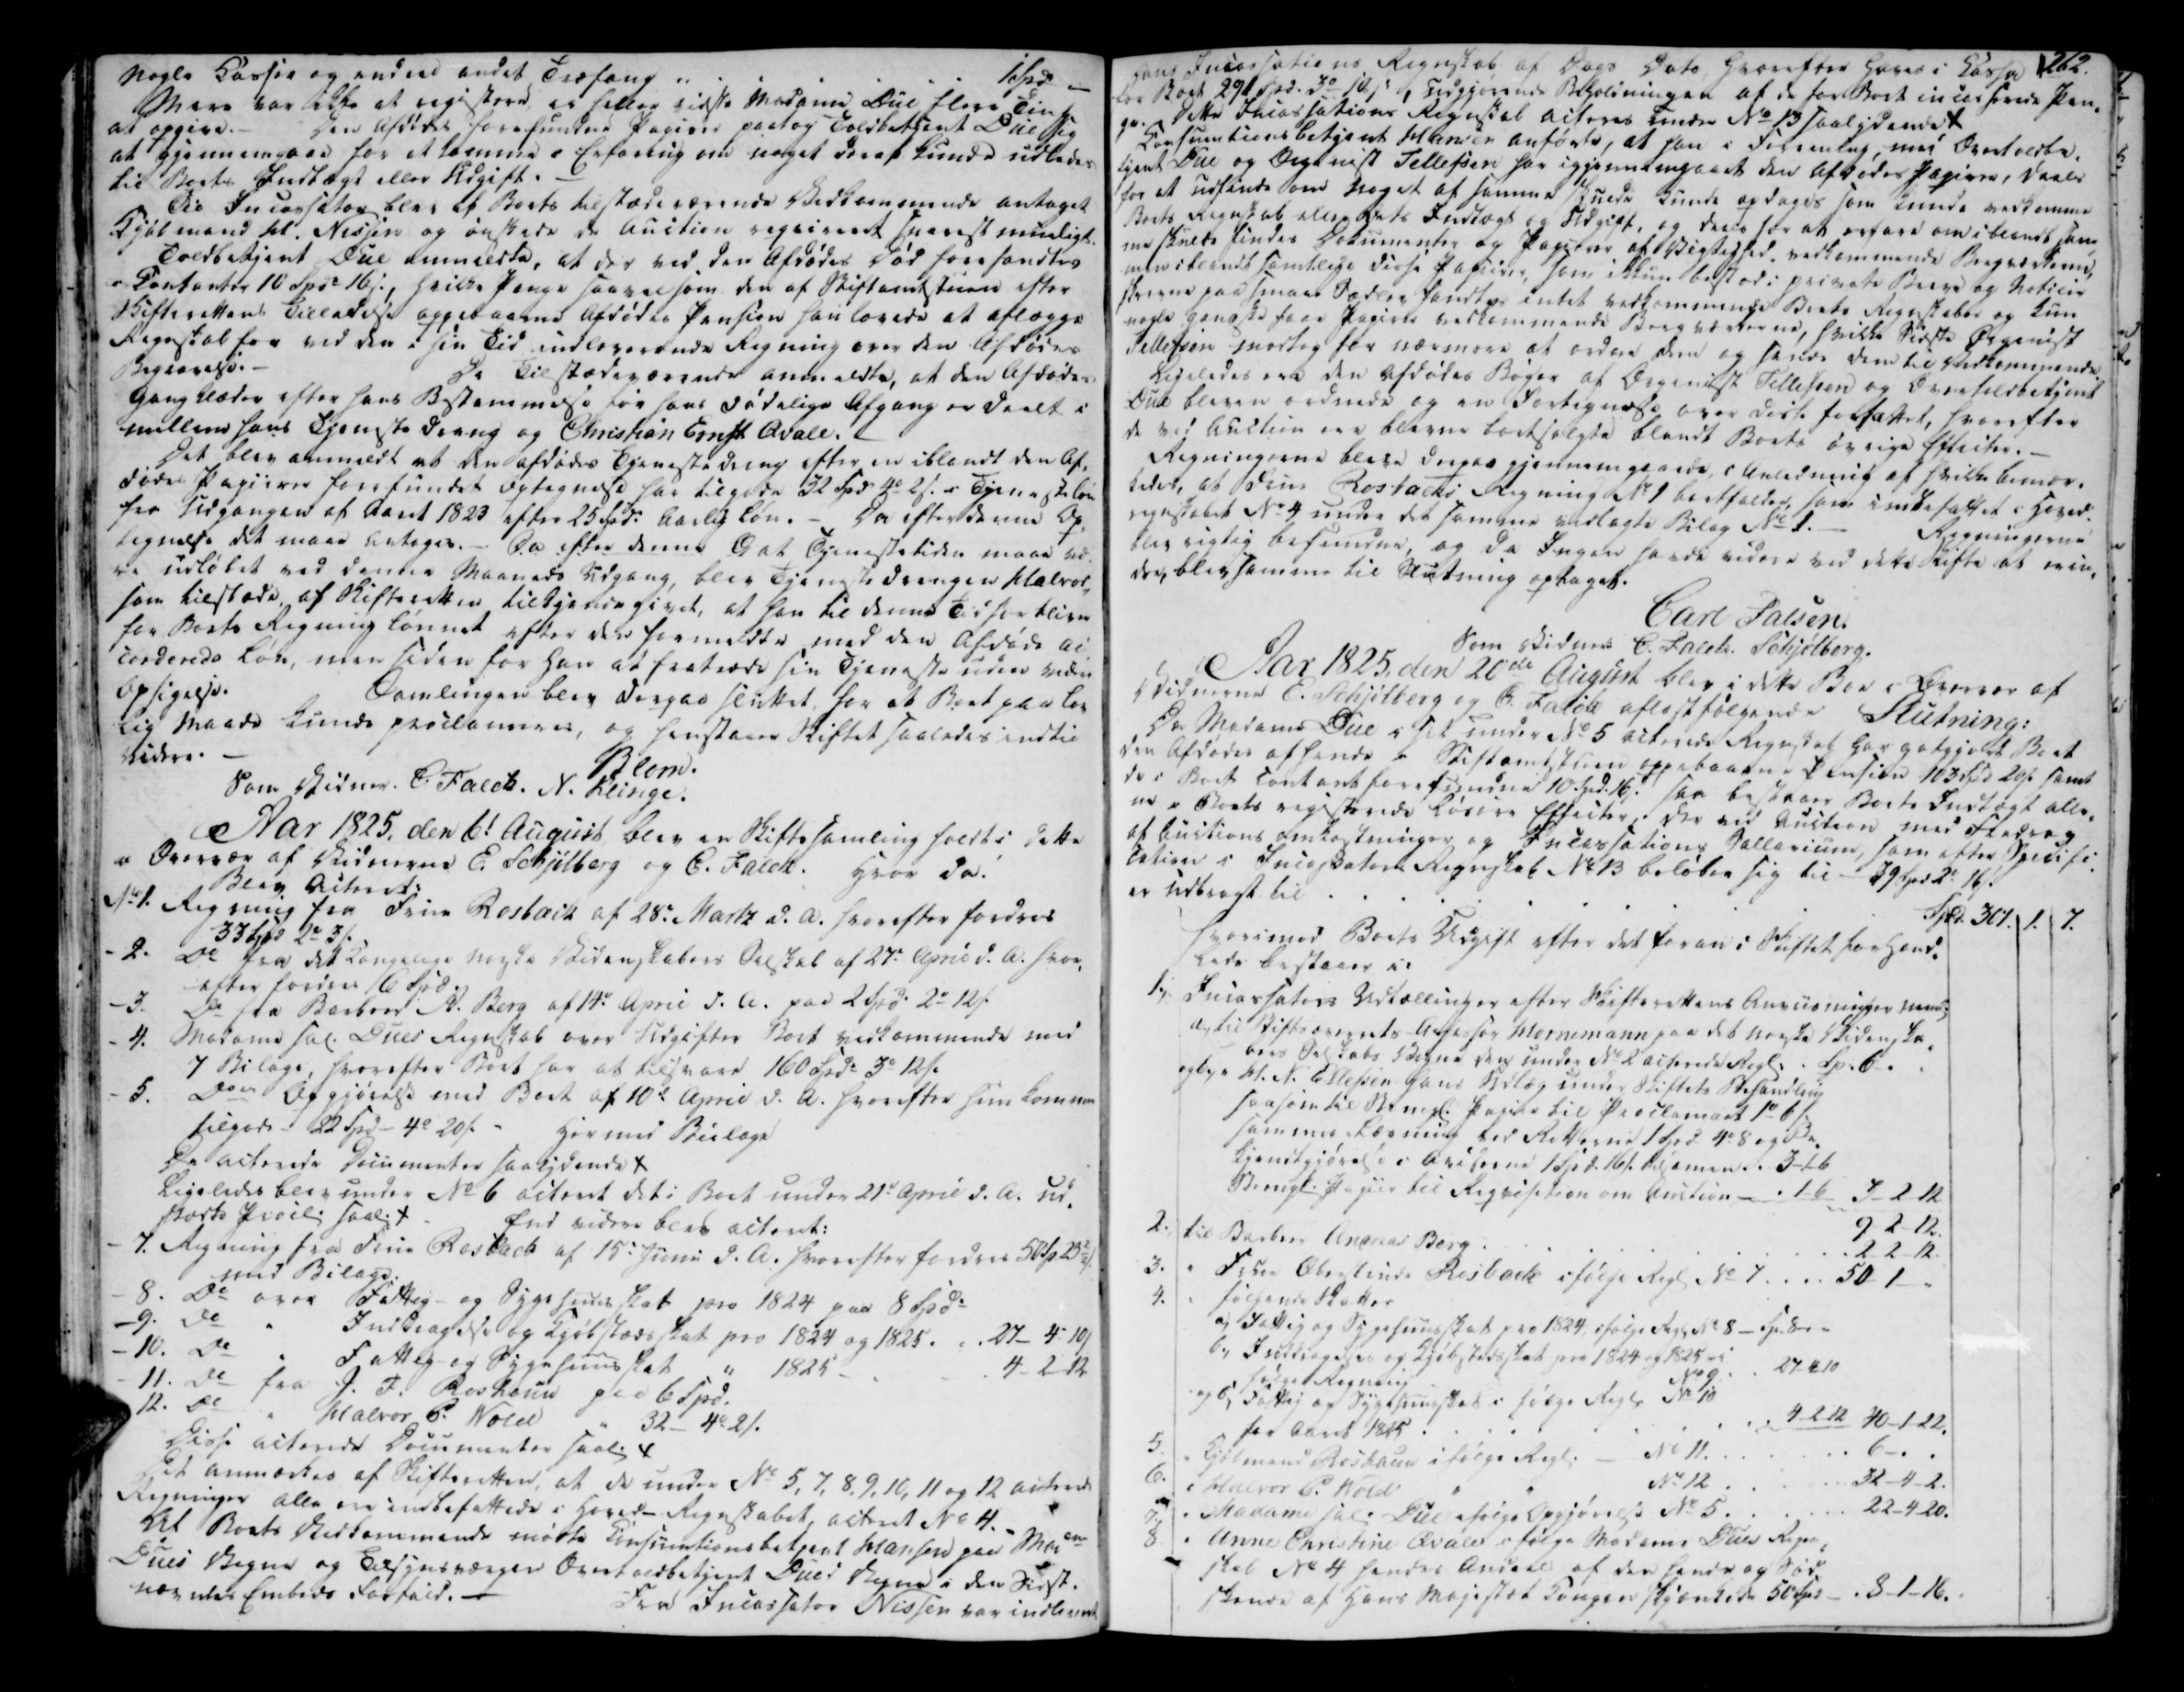 Nogle Kasser og andet andet Træfang " . . . . . 1 Spd —
Mere var ikke at registrere, ei heller vidste Madame Due flere Ting
at opgive. — Den Afdødes forefundne Papirer paatog Toldbetjent Due sig
at gjennemgaae for at komme i Erfaring om noget deraf kunde udledes
til Boets Indtægt eller Udgift. —
Til Incassator blev af Boets tilstædeværende Vedkommende antaget
Kjøbmand H. Nissen og ønskede de Auction reqvireret snarest mueligt.
Toldbetjent Due anmeldte, at der ved den Afdødes Død forefandtes
i Contanter 10 Spd 16 s., hvilke Penge saavelsom den af Stiftamtstuen efter
Skifterettens Tilladelse oppebaarne Afdødes Pension han lovede at aflægge
Regnskab for ved den i sin Tid indleverende Regning over den Afdødes
Begravelse. — De Tilstædeværende anmeldte, at den Afdødes
Gangklæder efter hans Bestemmelse før hans dødelige Afgang er deelt i
mellem hans Tjenestedreng og Christian Ernst Qvale. —
Det blev anmeldt at den afdødes Tjenestedreng efter en iblandt den Af-
dødes Papirer forefundet Optegnelse har tilgode 32 Spd 4o 2 s. i Tjenesteløn
fra Udgangen af Aaret 1823 efter 25 Spd. Aarlig Løn. — Da efter denne Op-
tegnelse det maae antages. — Da efter denne Dat Tjenestetiden maae væ-
re udløbet ved denne Maaneds Udgang, blev Tjenestedrengen Halvor,
som tilstæde, af Skifteretten tilkjendegivet, at han til denne Tid forbliver
for Boets Regning lønnet efter den formeldte med den Afdøde ac-
corderede Løn, men siden for han at fratræde sin Tjeneste uden viden
Opsigelse. Samlingen blev derpaa sluttet, for at Boet paa lov
lig Maade kunde proclameres, og henstaaer Skiftet saaledes indtil
videre. —
Blom.
Som Vidner. C. Falck. N. Klinge.
Aar 1825, den 6t August blev en Skiftesamling holdt i dette
i Overvær af Vidnerne E. Schjølberg og C. Falck. Hvor da:
Blev Acteret:
No 1. Regning fra Frue Rosbach af 28de Martz d. A. hvorefter fordres
33 Spd 2o 3 s.
- 2. Do fra det Kongelige norske Videnskabers Selskab af 27de April d. A. hvor-
efter fordres 6 Spd.
- 3. Do fra Barbeer A. Berg af 14de April d. A. paa 2 Spd. 2o 12 s.
- 4. Madame sal. Dues Regnskab over Udgifter Boet vedkommende med
7 Bilage, hvorefter Boet har at tilsvare 160 Spd. 3o 12 s.
- 5. Do Opgjørelse med Boet af 10de April d. A. hvorefter hun kommer
tilgode — 22 Spd — 4o 20 s. — Hermed Bielage
De acterede Documenter saalydende X
Ligeledes blev under No 6 acteret det i Boet under 21de April d. A. ud-
stædte Procl. saal. X — End videre blev acteret:
- 7. Regning fra Frue Rosbach af 15de Juni d. A. hvorefter fordres 50 Sp 23 s
med Bilage.
- 8. Do over Fattig- og Sygehuusskat pro 1824 paa 8 Spd.
- 9. Do " Inddragelse og Kjøbstædsskat pro 1824 og 1825 . . 27 — 4 — 10
- 10. Do " Fattig og Sygehuusskat " 1825 — . . . 4 — 2 — 12
- 11. Do fra J. F. Roshauw paa 6 Spd.
12. Do " Halvor P. Wold " 32 — 4o 2 s.
Disse acterede Documenter saal. X
Det anmærkes af Skifteretten, at de under No 5, 7, 8, 9, 10, 11 og 12 acterede
Regninger alle ere indbefattede i Hoved-Regnskabet, acteret No 4. —
Af Boets Vedkommende mødte Consumtionsbetjent Hansen paa Madm
Dues Vegne og Tilsynsværgen Overtoldbetjent Dues Vegne i den Sidst-
nævntes Embeds Forfald. — Fra Incassator Nissen var indleveret
262.
hans Incassations Regnskab af Dags Dato, hvorefter haves i Cassa
for Boet 291 Spd. 3o 14 s., Udgjørende Beholdningen af de for Boet incasserede Pen-
ge. Dette Incassations Regnskab acteres under No 13 saalydende X
Consumtionsbetjent Hansen anførte, at han i Forening med Overtoldbe-
tjent Due og Organist Tellefsen har igjennemgaaet den Afdødes Papirer, deels
for at udfinde om Noget af samme skulde kunde opdages som kunde vedkomme
Boets Regnskab eller Boets Indtægt og Udgift, og deels for at erfare om iblandt sam-
me skulde findes Documenter og Papirer af Vigtighed, vedkommende Bergværkerne,
men iblandt samtlige disse Papirer, som ikkun bestod i private Breve og Noticer
skrevne paa smaae Sædler, fandtes intet vedkommende Boets Regnskaber og kun
nogle ganske faae Papirer vedkommende Bergværkerne, hvilke Sidste Organist
Tellefsen modtog for nærmere at ordne dem og sende dem til Vedkommende
Ligeledes ere den Afdødes Bøger af Organist Tellefsen og Overtoldbetjent
Due bleven ordnede og en Fortegnelse over disse forfattet, hvorefter
de ved Auction ere blevne bortsolgte blandt Boets øvrige Effecter. —
Regningerne bleve derpaa gjennemgaaede, i Anledning af hvilke bemær-
kedes, at Frue Rosbachs Regning No 1 bortfalder, som indbefattet i Hoved-
regnskabet No 4 under det samme vedlagte Bilag No 1. — Regningerne
blev rigtig befundne, og da Ingen havde videre ved dette Skifte at erin-
dre, blev samme til Slutning optaget.
Carl Falsen.
Som Vidner C. Falck. Schjølberg.
Aar 1825, den 20de August blev i dette Boe i Overvær af
Vidnerne E. Schjølberg og C. Falck aflagt følgende Slutning:
Da Madame Due i sit under No 5 acterede Regnskab har godgjort Boet
den Afdødes afhende i Stiftamtstuen oppebaarne Pension 103 Spd 20 s. samt
de i Boet contant forefundne 10 Spd. 16 s. saa bestaaer Boets Indtægt alle-
ne i Boets registrerede Løsøre Effecter, der ved Auction med Fradrag
af Auctions Omkostninger og Incassations Sallarium, som efter Specifi-
cation i Incassators Regnskab No 13 beløber sig til — 39 Spd 2o 16 s.
er udbragt til . . . . . . . . . Spd. 301. 1. 7.
Hvorimod Boets Udgift efter det foran i Skiftet forhand-
lede bestaaer i:
1., Incassators Udtællinger efter Skifterettens Anviisninger nemlig
a, til Stiftsoverrets-Assessor Hornemann paa det norske Videnska-
bers Selskabs Vegne den under No 2 acterede Regl. . Sp. 6 — . .
og b, " H. N. Ellefsen hans Udlæg under Skiftets Behandling
saasom til Stempl. Papir til Proclamaet 1o 6 s.
sammes Læsning ved Retterne 1 Spd 4o 8 og Be-
kjendtgjørelse i Aviserne 1 Spd. 16 s. tilsammen . . 3 — 1 — 6
Stempl. Papir til Reqvisition om Auction — . 1 — 6 3 — 2 — 12
9 — 2 — 12.
2. til Barbeer Andreas Berg . . . . . . . 2 — 2 — 12.
3. " Frue Oberstinde Rosbach ifølge Regl. No 7 . . . . 50 — 1 — "
4. " følgende Skatter
a, Fattig og Sygehuusskat pro 1824, ifølge Regl. No 8 — Sp. 8 — " —
b, Inddragelses og Kjøbstadsskat pro 1824 og 1825 i
følge Regning No 9 . . 27 — 4 — 10
og c, Fattig og Sygehuusskat i følge Regl. No 10
for Aaret 1825 . . . . . . 4 — 2 — 12 40 — 1 — 22.
5. " Kjøbmand Roshauw i følge Regl. — No 11 . . . . 6 — . .
6. " Halvor P. Wold " " No 12 . . . . 32 — 4 — 2.
7. " Madame sal. Due ifølge Opgjørelse No 5 . . . . 22 — 4 — 20.
8. " Anne Christine Qvale i følge Madame Dues Regn-
skab No 4 hendes Andeel af den hende og Sød-
skende af Hans Majestæt Kongen skjænkede 50 Spd — . 8 — 1 — 16.